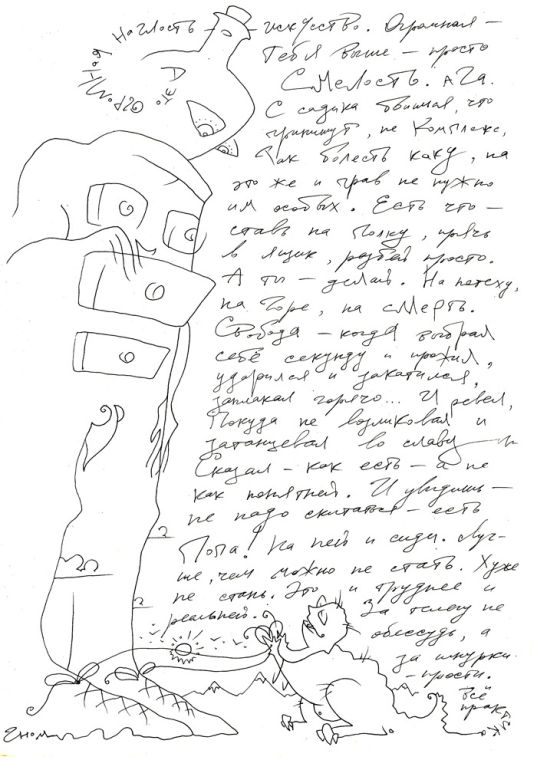 Наглость – искусство. Огромная –
тебя выше – просто
Смелость. Ага.
С садика бывшая, что
не комплекс,
как болесть каку, на
это же и прав не нужно
им особых. Есть что –
ставь на полку, прячь
в ящик, разбей просто.
А ты – делай. На потеху,
на горе, на смерть.
Свобода – когда выбрал
себе секунду и прожил,
ударился и закатился,
заплакал горячо... И ревел,
Покуда не возликовал и
затанцевал во славу –
Сказал – как есть – а не
как понятней. И увидишь –
не надо скитаться – есть
Попа! На ней и сиди. Луч-
ше, чем можно не стать. Хуже
не стань. Это и труднее и
реальней. За телегу не
обессудь, а
за шнурки
– прости.
Всё
Гном